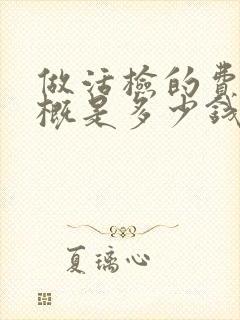 做活检的费
概是多少钱
夏璃心